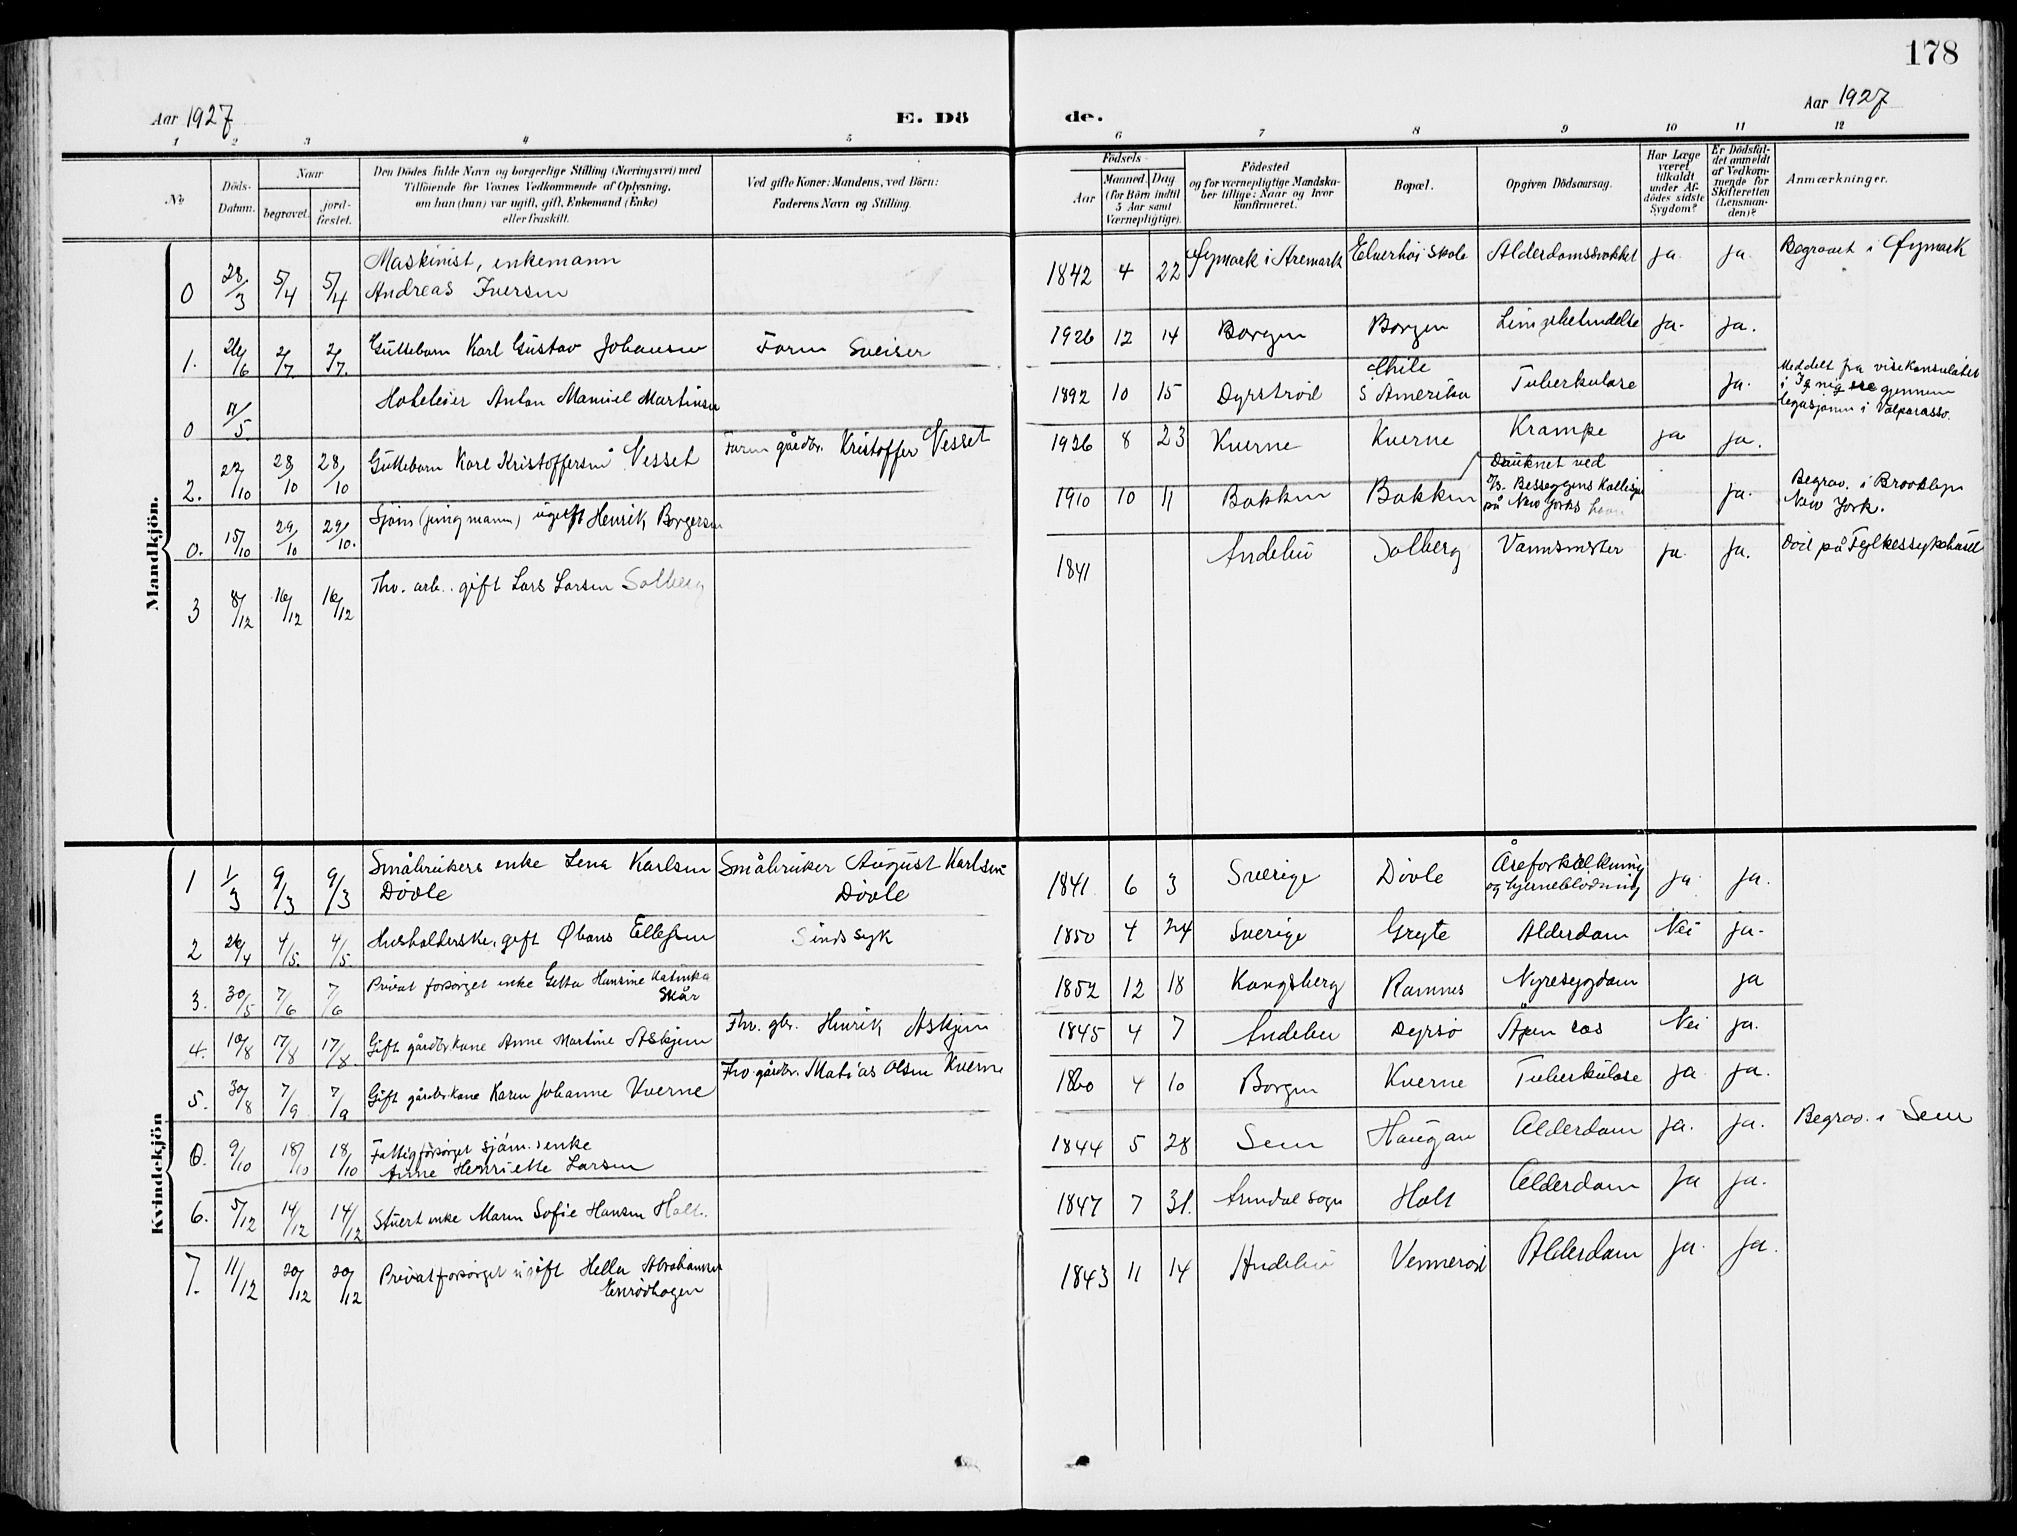 178
Aar 1927 E. Dö de. Aar 1927
1 2 3 4 5 6 7 8 9 10 11 12
No
Döds-Datum.
Naar
begravet.
jord-fæstet.
Den Dödes fulde Navn og borgerlige Stilling (Næringsvei) med
Tilföiende for Voxnes Vedkommende af Oplysning,
om han (hun) var ugift, gift, Enkemand (Enke)
eller fraskilt.
Ved gifte Koner: Mandens, ved Börn:
Faderens Navn og Stilling.
Födsels-
Aar
Maaned. Dag
(for Börn indtil
5 Aar samt
Værnepligtige).
Födested
og for værnepligtige Mandska-
ber tillige: Naar og hvor
konfirmeret.
Bopæl.
Opgiven Dödsaarsag.
Har Læge
været
tilkaldt
under Af-
dödes sidste
Sygdom?
Er Dödsfal-
det anmeldt
af Vedkom-
mende for
Skifteretten
(Lensman-
den)?
Anmærkninger.
Mandkjön.
0 28/3 5/4 5/4 Maskinist, enkemann
Andreas Iversen 1842 4 22 Øymark i Aremark Elverhøi skole Alderdomssvakket ja. ja. Begravet i Øymark
1. 26/6 2/7 2/7. Guttebarn Karl Gustav Johansen Farm Sveiser 1926 12 14 Borgen Borgen ja. ja.
0 11/5 Hoteleier Anton Manuel Martinsen 1892 10 15 Dyrsrød Chile
S Amerika Tuberkulose ja. Meddelt fra visekonsulatet
i gjennem
legasjonen i Valparaiso.
2. 22/10 28/10 28/10 Guttebarn Kare Kristoffersen Vesset Farm gårdbr. Kristoffer Vesset 1926 8 23 Kverne Kverne Krampe ja ja.
0. 15/10 29/10 29/10. Sjøm (jungmann) ugift Henrik Borgersen 1910 10 11 Bakken Bakken Druknet ved
D/s. Besseggens Kollisjon
på New Yorks havn ja. Begrav. i Brooklyn
New York.
3 8/12 16/12 16/12 Fhv. arb. gift Lars Larsen Solberg 1841 Andebu Solberg Vannsmster ja. ja. Død på Fylkessykehuset
Kvindekjön
1 1/3 9/3 9/3 Småbrukers enke Lena Karlsen
Døvle Småbruker August Karlsen
Døvle 1841. 6 3 Sverige Døvle Åreforkalkning
og hjerneblødning ja. ja.
2 26/4 4/5. 4/5. Husholderske, gift Ellefsen Sinds syk 1850 4 24 Sverige Gryte Alderdom Nei ja.
3. 30/5 7/6 7/6 Privat forsørget enke Hansine Katinka
Skår 1852 12 18 Kongsberg Ramnes Nyresygdom ja
4. 10/8 17/8 17/8. Gift gårdbr.kone Anne Martine Askjem Fhv. gbr. Henrik Askjem 1845 4 7 Andebu Dyrsø Åpen Nei ja.
5. 30/8 7/9. 7/9 Gift gårdbr.kone Karen Johanne Kverne Fhv. gårdbr. Matias Olsen Kverne 1860 4 10 Borgen Kverne Tuberkulose ja ja.
0. 9/10 18/10 18/10 Fattigforsørget sjøm.s enke
Anne Henriette Larsen 1844 5 28 Sem Haugan Alderdom ja. ja. Begrav. i Sem
6. 5/12 14/12 14/12 Stuert enke Maren Sofie Hansen Holt. 1847 7 31. Arendal sogn Holt Alderdom ja ja.
7. 11/12 20/12 20/12 Privatforsørget ugift Hella Abrahamsen
Enrødhagen 1843 11 14 Andebu Vennerød Alderdom ja. ja.